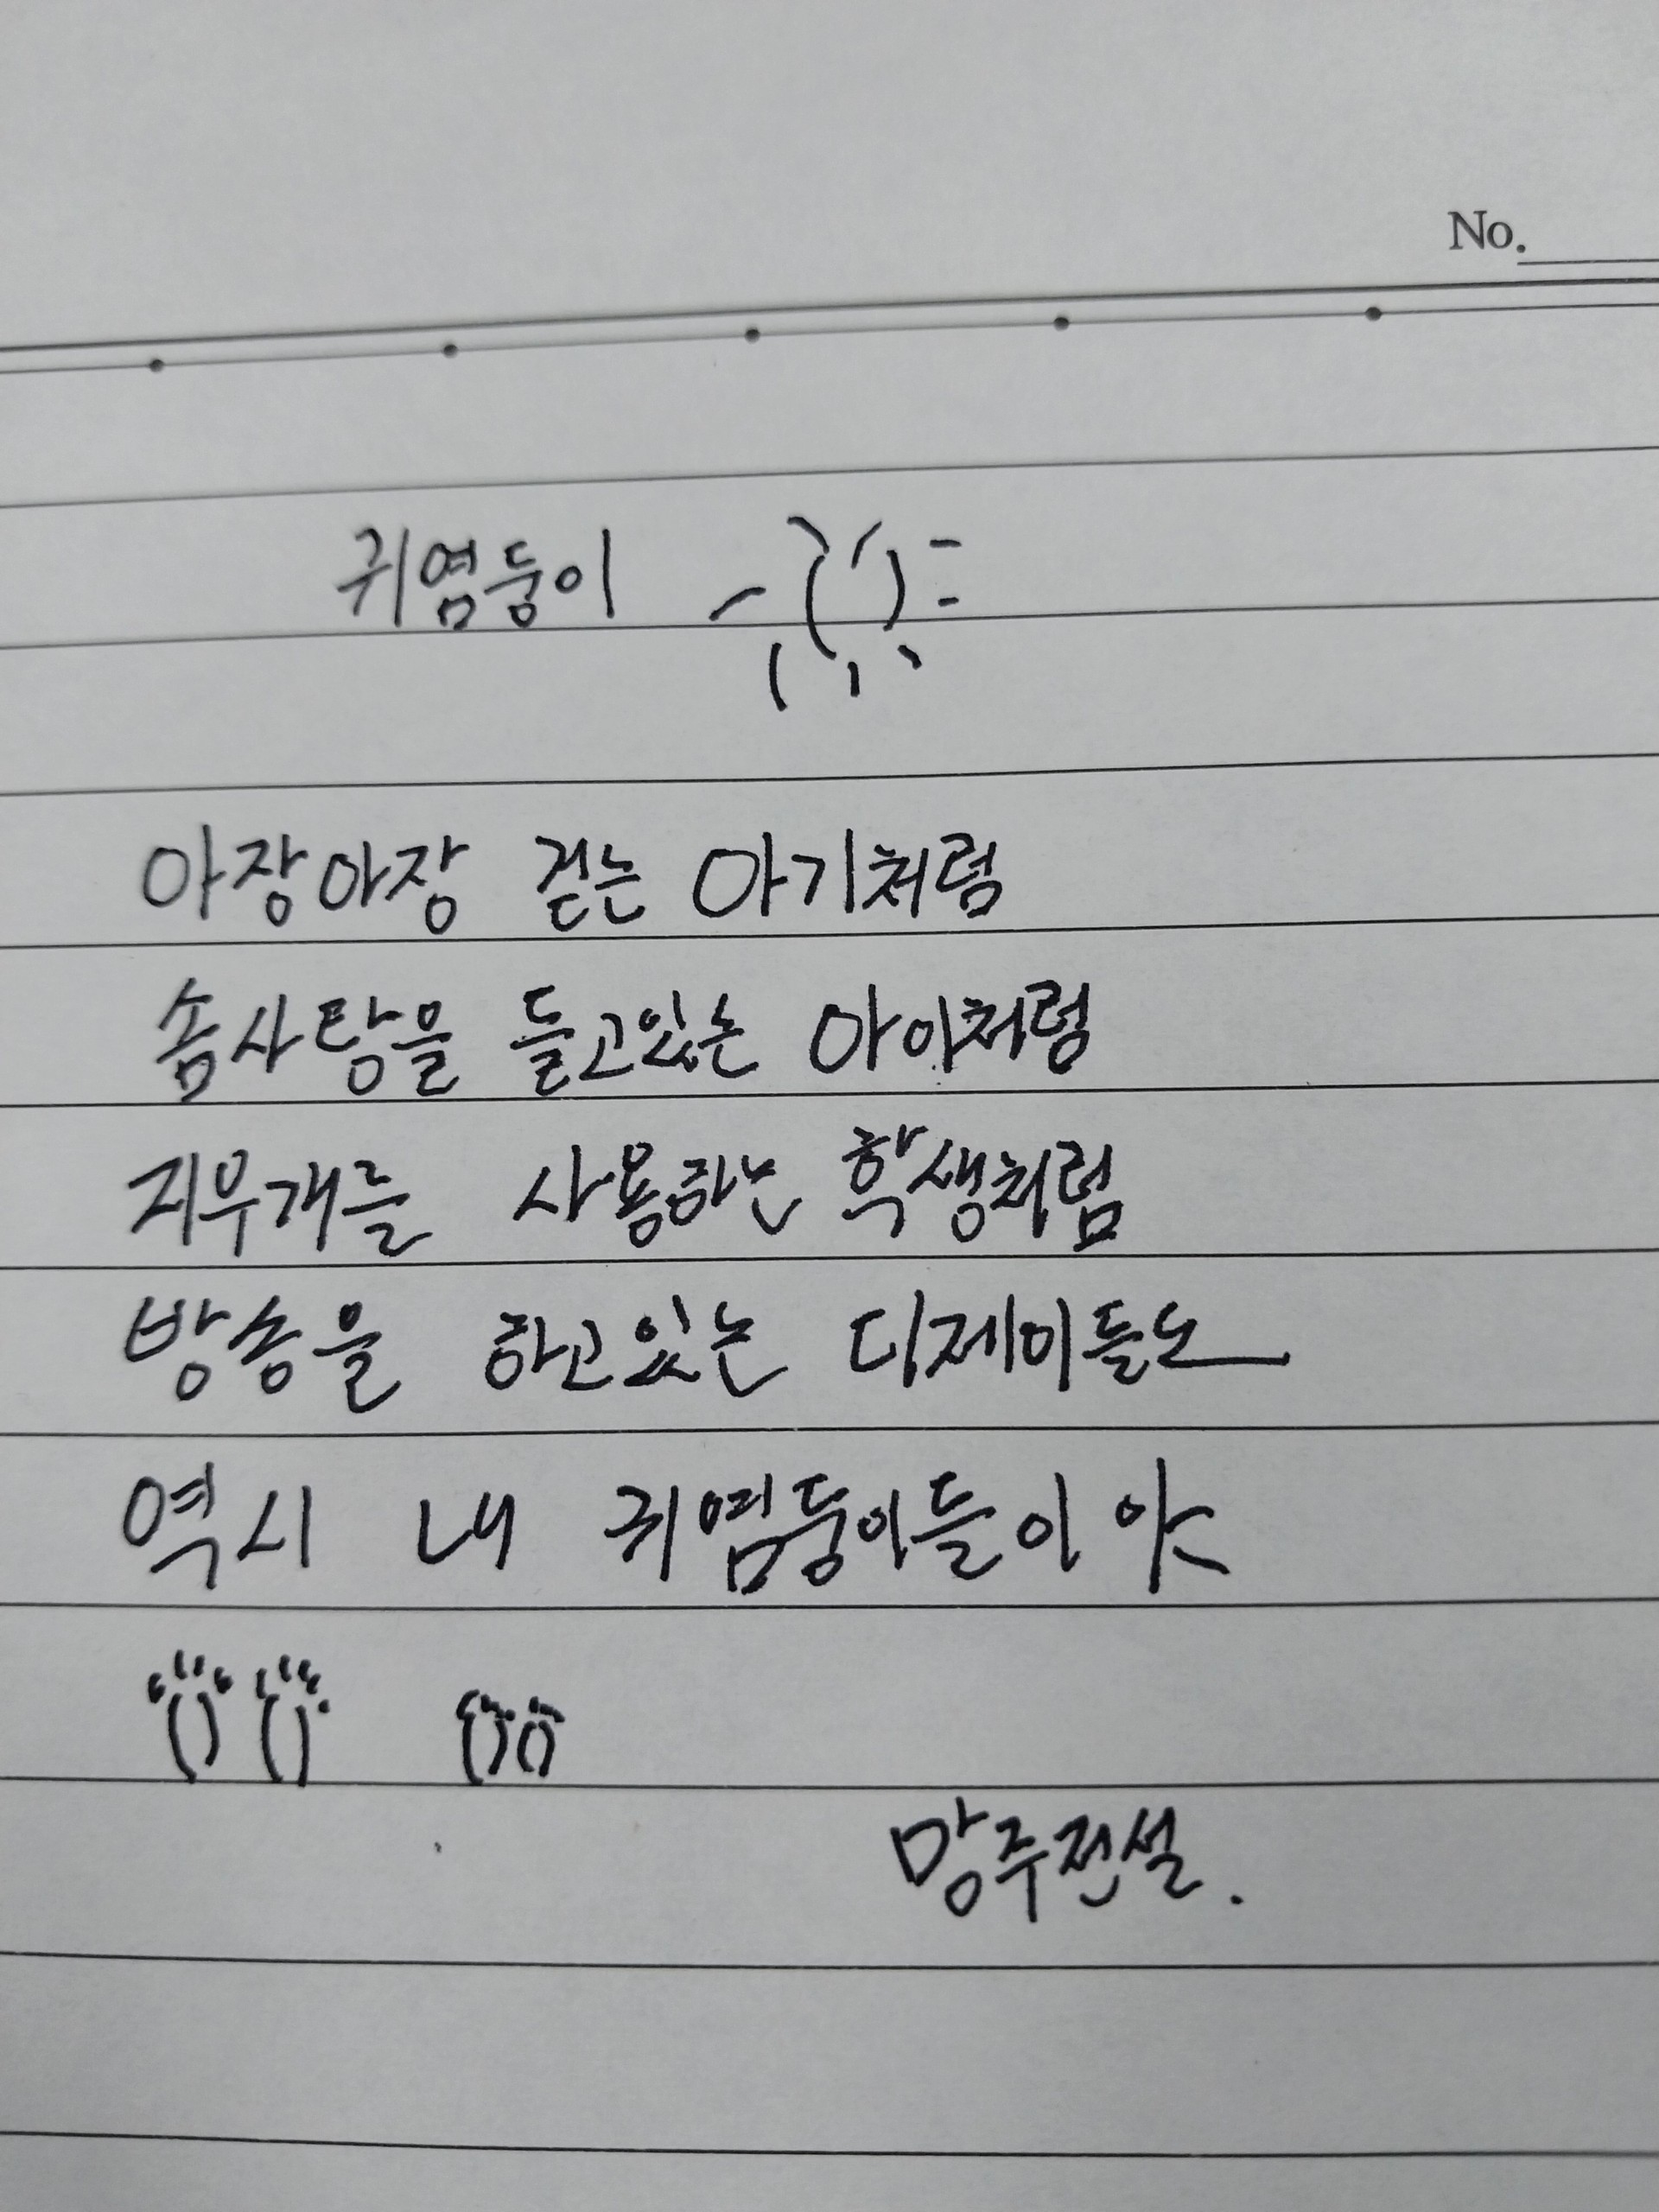 No.
귀염둥이
아장아장 걷는 아기처럼
솜사탕을 들고있는 아이처럼
지우개를 사용하는 학생처럼
방송을 하고있는 디제이들도
역시 내 귀염둥이들이얏
망주전설.